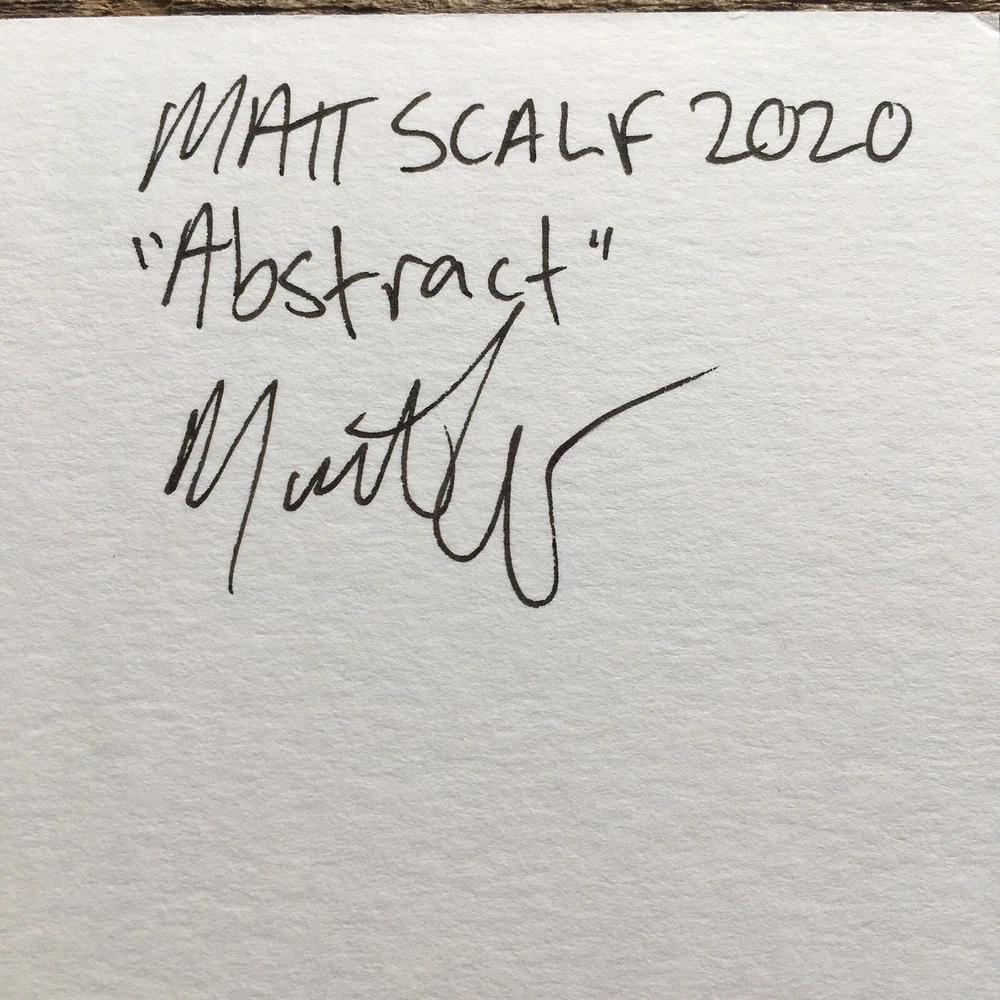 MATT SCALF 2020
"Abstract"